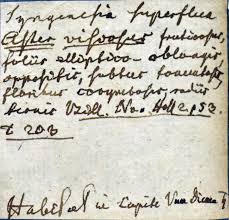 Syngenesia superflua
Aster viscosus fruticosus,
foliis elliptico-oblongis,
oppositis, subtus tomentosis,
floribus corymbosis, radiis
ternis Labill. Nov. Holl 2. p 53.
t 203
Habitat in Capite Van Diemen